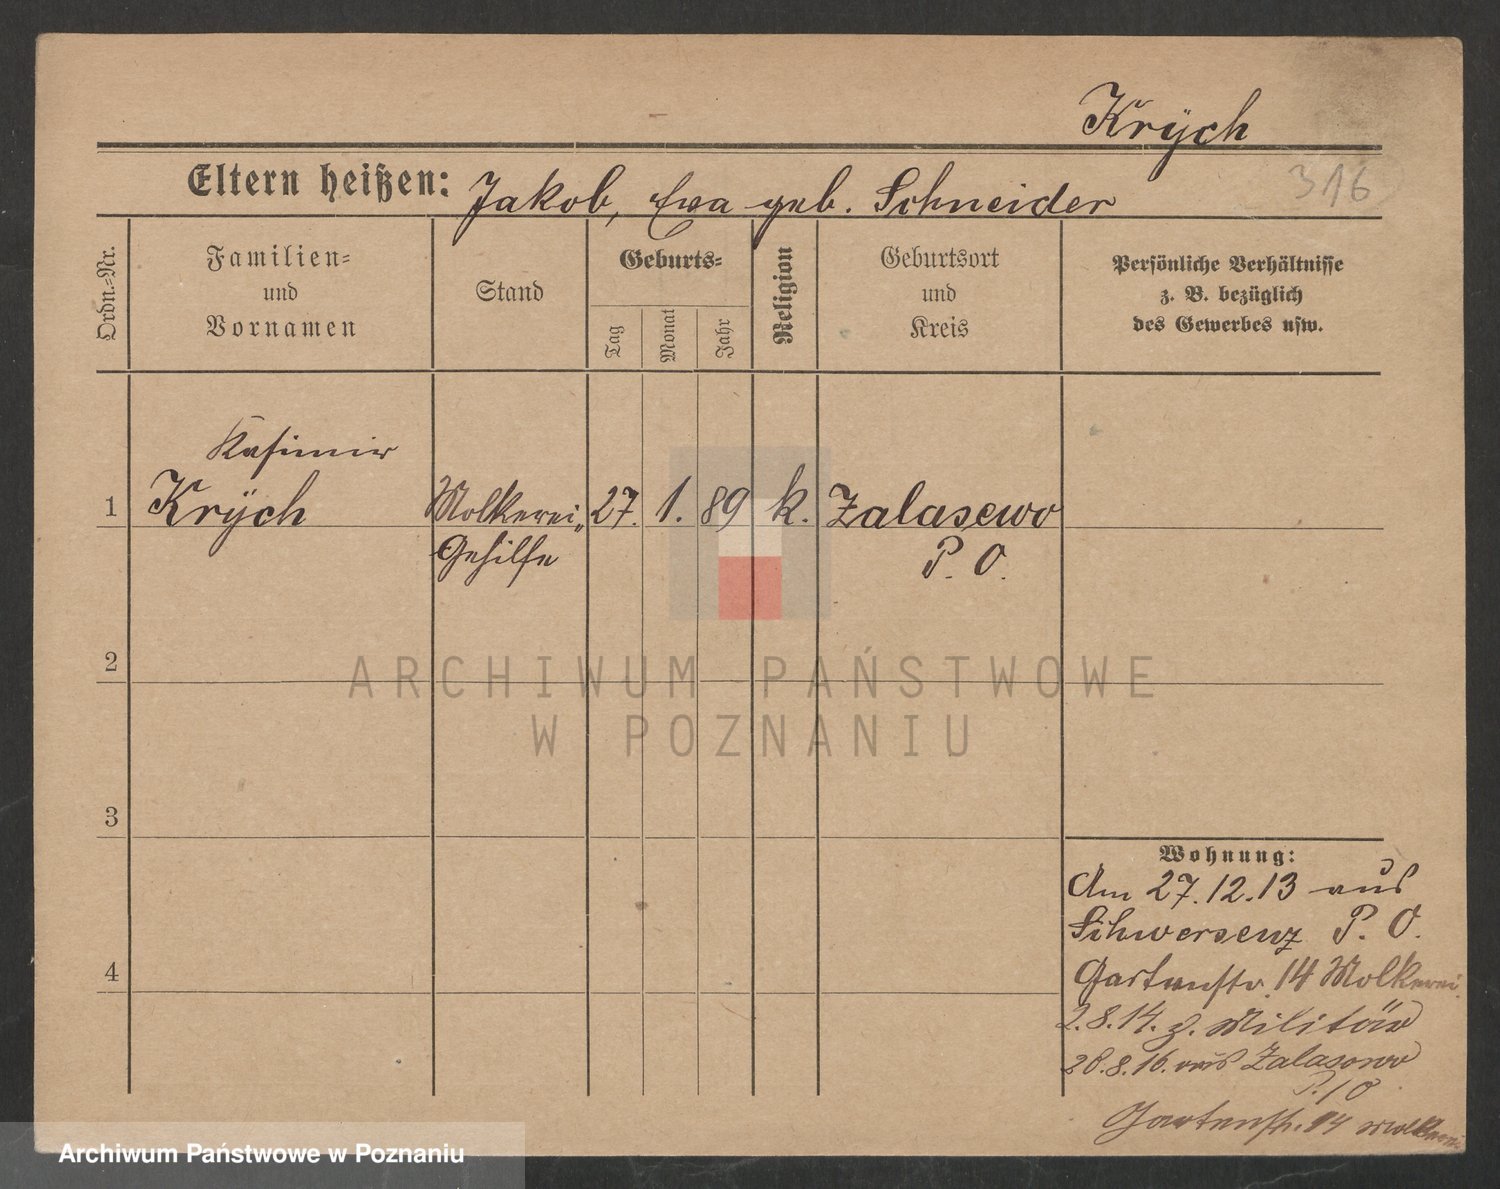 Krÿch
316
Eltern heißen: Jakob, Ewa geb. Schneider
Ordn.-Nr.
Familien-
und
Vornamen
Stand
Geburts-
Tag
Monat
Jahr
Religion
Geburtsort
und
Kreis
Persönliche Verhältnisse
z. B. bezüglich
des Gewerbes usw.
Kasimir
1 Krÿch Molkerei- 27. 1. 89 k. Zalasewo
Gehilfe P. O.
2
3
4
Wohnung:
Am 27.12.13 aus
Schwersenz P. O.
Gartenstr. 14 Molkerei
2.8.14. z. Militär
28.8.16. aus Zalasewo
P. O
Gartenstr. 14 Molkerei
ARCHIWUM PAŃSTWOWE
W POZNANIU
Archiwum Państwowe w Poznaniu